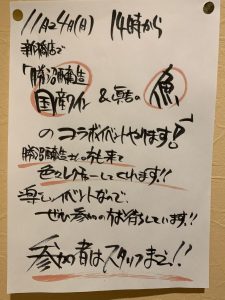 11月24日(月) 14時から
新橋店で
「勝沼醸造
国産ワイン & 真壱の 魚
のコラボイベントやります!」
勝沼醸造さんがお越し来て
色々レクチャーしてくれます!!
楽しいイベントなので、
ぜひ参加の方お待ちしています!!
参加者はスタッフまで!!